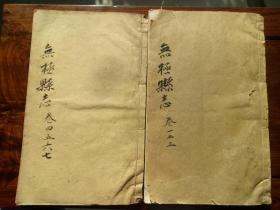 無極縣志 卷一二三
無極縣志 卷四五六七